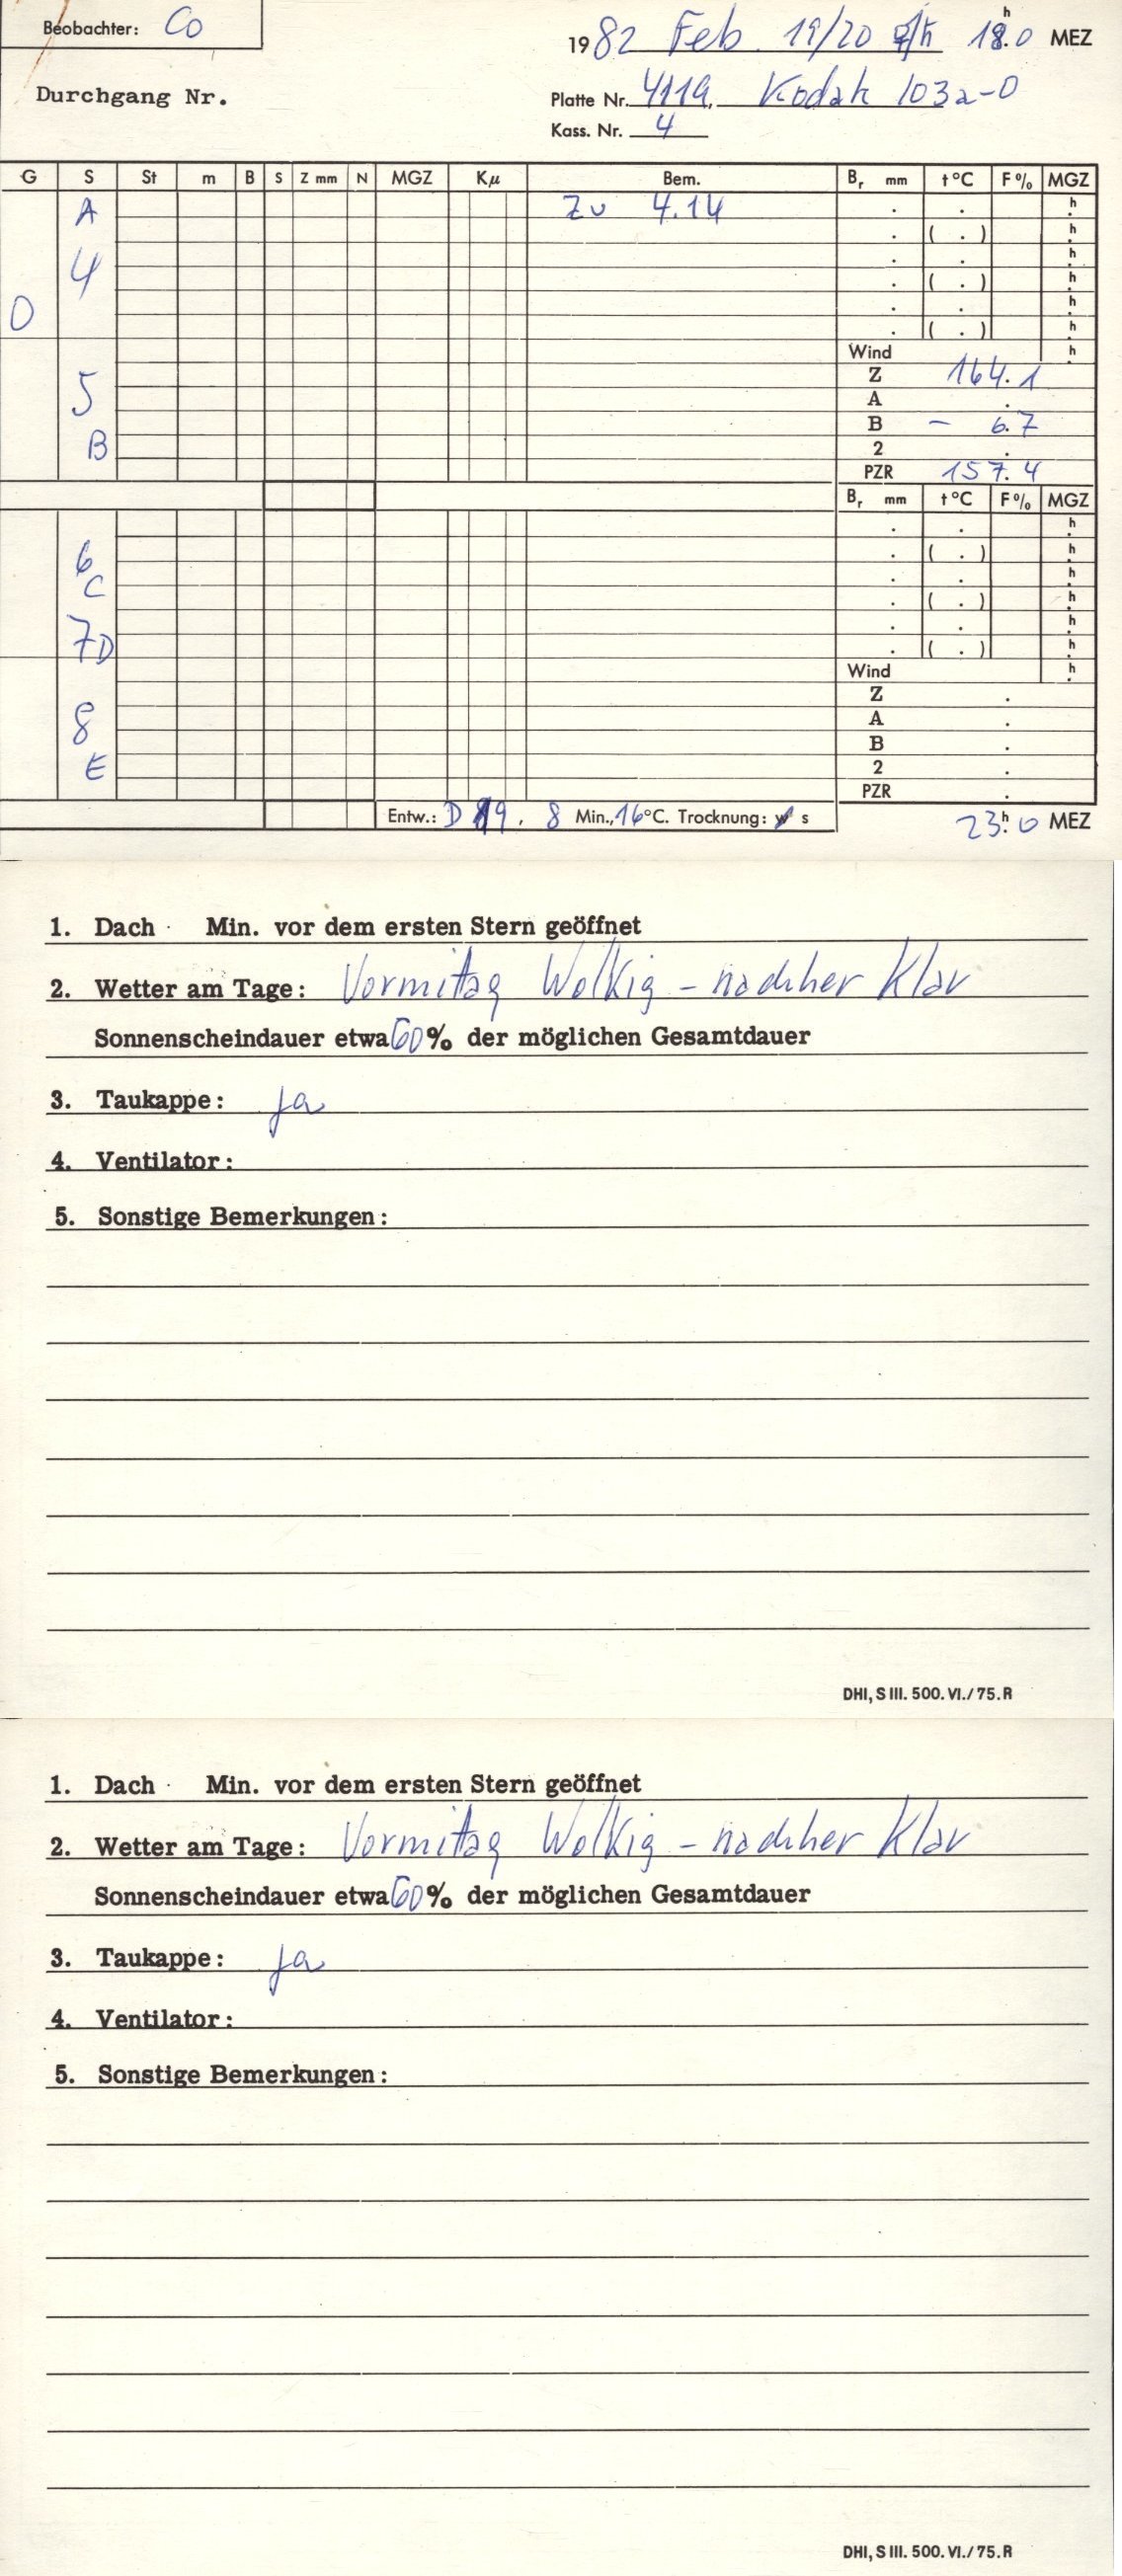 Beobachter: Co
1982 Feb. 19/20 18.h0 MEZ
Durchgang Nr.
Platte Nr. 4119, Kodak 103a-O
Kass. Nr. 4
G S St m B S Z mm N MGZ Kμ Bem. Br mm t °C F% MGZ
A Zu 4.14 . . h
. ( . ) h
4 . . h
. ( . ) h
O . . h
. ( . ) h
Wind h
Z 164.1
5 A .
B - 6.7
B 2 .
PZR 157.4
Br mm t °C F% MGZ
. . h
6 . ( . ) h
C . . h
. ( . ) h
7 . . h
D . ( . ) h
Wind h
Z .
8 A .
B .
E 2 .
PZR .
Entw.: D 19, 8 Min., 16°C. Trocknung: w s
23.h0 MEZ
1. Dach Min. vor dem ersten Stern geöffnet
2. Wetter am Tage: Vormittag Wolkig - nachher Klar
Sonnenscheindauer etwa 60% der möglichen Gesamtdauer
3. Taukappe: Ja
4. Ventilator:
5. Sonstige Bemerkungen:
DHI, S III. 500. VI./75.R
1. Dach Min. vor dem ersten Stern geöffnet
2. Wetter am Tage: Vormittag Wolkig - nachher Klar
Sonnenscheindauer etwa 60% der möglichen Gesamtdauer
3. Taukappe: Ja
4. Ventilator:
5. Sonstige Bemerkungen:
DHI, S III. 500. VI./75.R